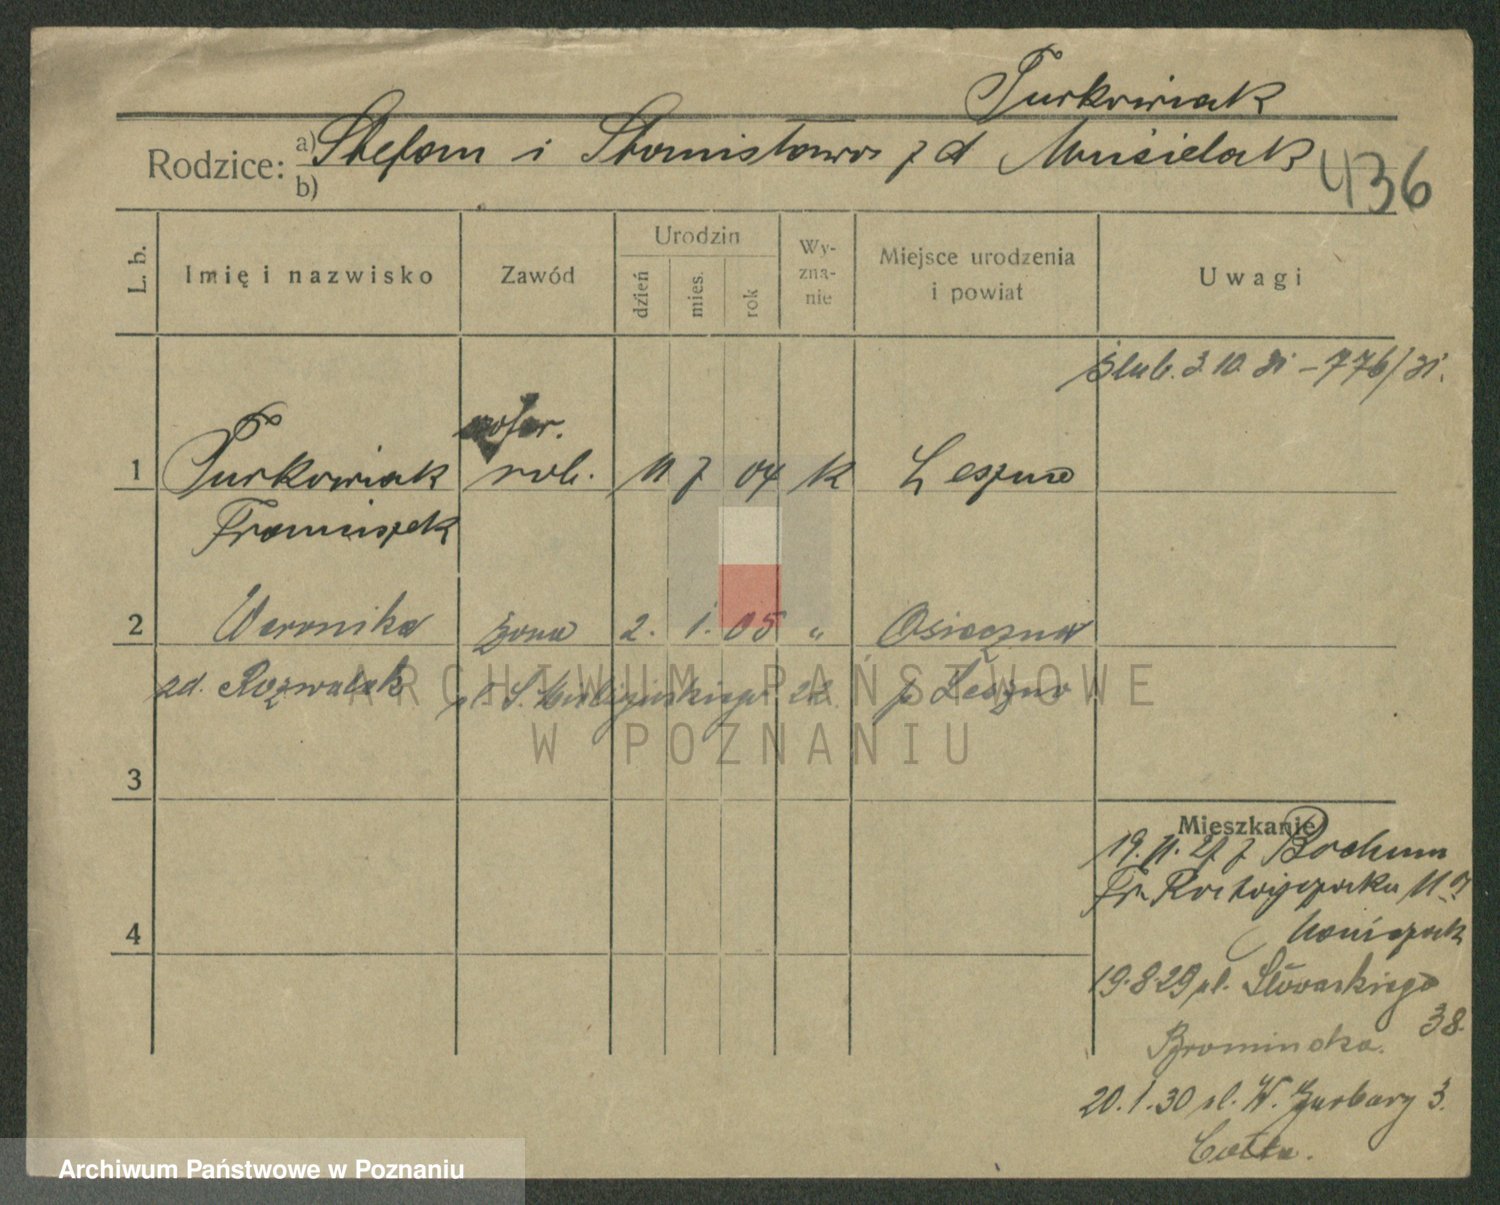 Turkowiak
Rodzice: a) Stefan i Stanisława z d Musielak
b)
436
L. b.
Imię i nazwisko
Zawód
Urodzin
dzień
mies.
rok
Wy-
zna-
nie
Miejsce urodzenia
i powiat
Uwagi
ślub. 3.10.31 – 776/31.
szofer.
1 Turkowiak rob. 11 7 04 K Leszno
Franciszek
2 Weronika żona 2. 1. 05 " Osieczna
zd. Rozwalak S. 22. p Leszno
3
4
Mieszkanie
19.11.27 z Bochum
Fr. Ratajczaka 11a
19.8.29 ul. Słowackiego
38.
20.1.30 ul. W. Garbary 3.
ARCHIWUM PAŃSTWOWE
W POZNANIU
Archiwum Państwowe w Poznaniu